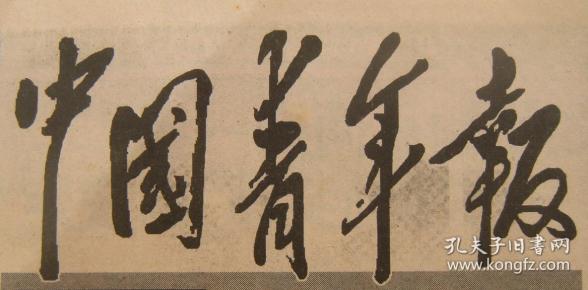 中國青年報
孔夫子旧书网
www.kongfz.com